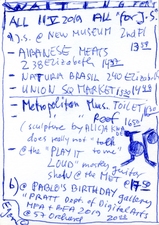 WAITING
ALL 11 V 2019 ALL "for J.S.
J.S. @ NEW MUSEUM 2nd Fl
- ALBANESE MEATS
238 Elizabeth 14
- NATURA BRASIL 240 Elizabeth
- UNION SQ MARKET
- Metropolitan Mus. TOILET
" " Roof
( sculpture by ALICJA KWA
does really not "talk"
- @ the "PLAY IT LOUD" to me
mostly guitar
show @ the MET
6) @ PABLO'S BIRTHDAY gallery
"PRATT" dept. of DIGITAL ARTS
MFA + BFA 2019
@ 57 Orchard